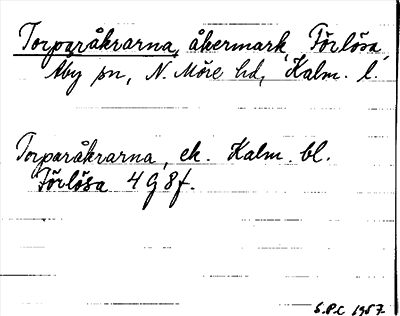 Torparåkrarna, åkermark, Förlösa,
Åby sn, N. Möre hd, Kalm. l.
Torparåkrarna, ek. Kalm. bl.
Förlösa 4 G 8 f.
S.P.C 1957